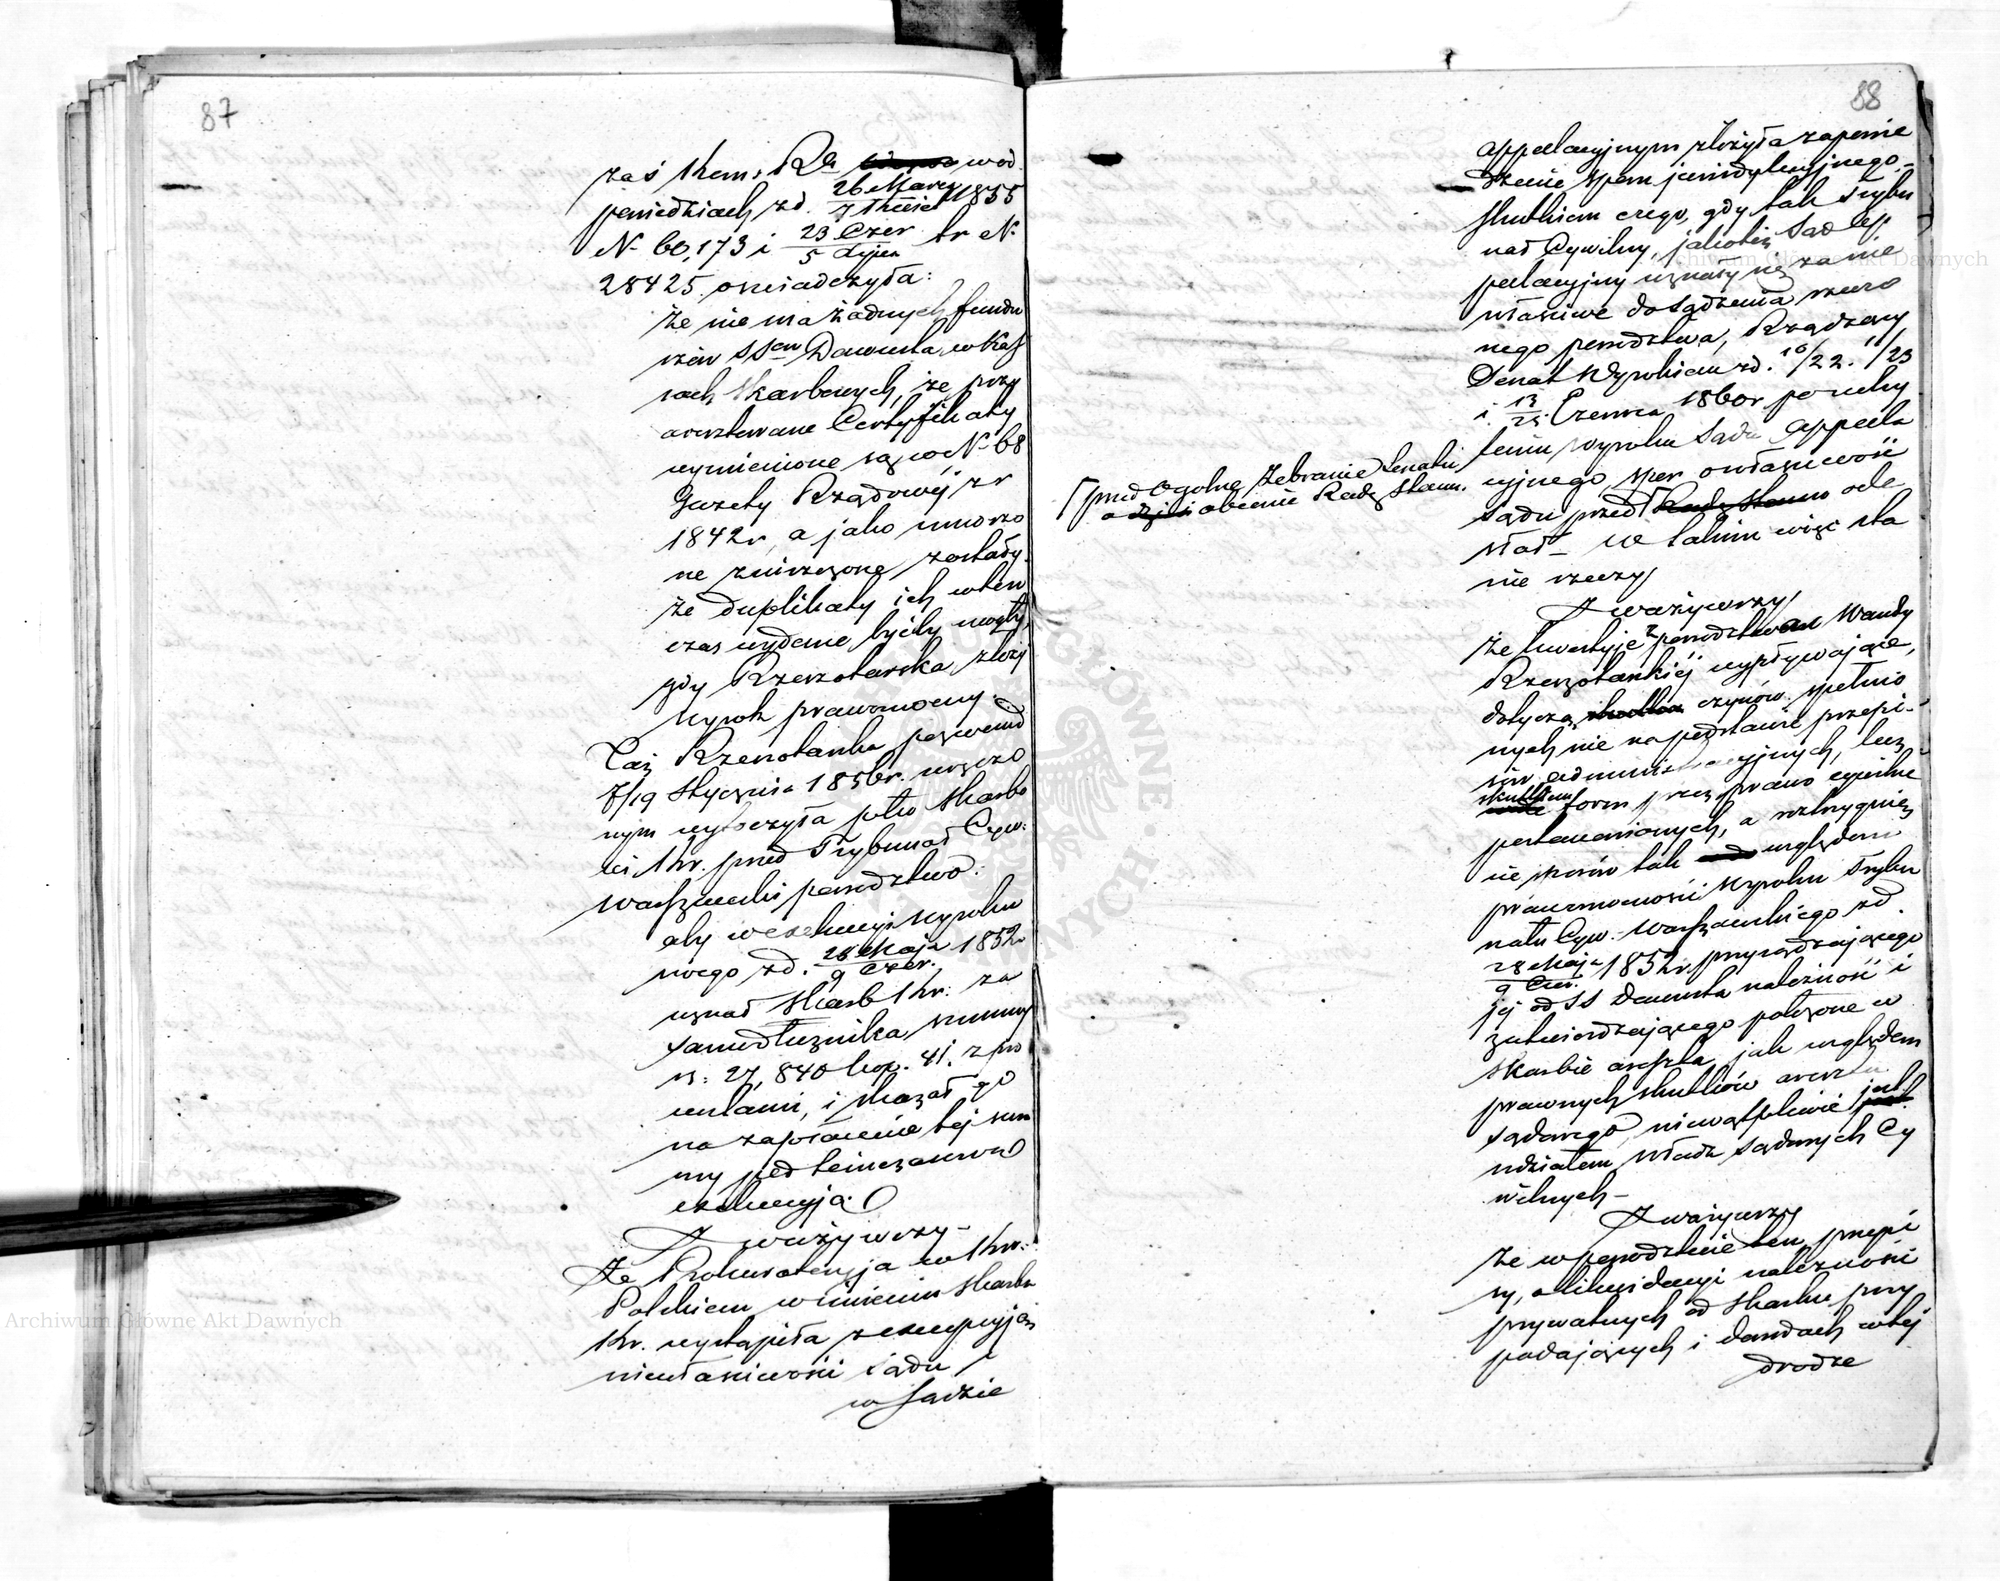 87
zaś Kom: Rz. wod
powiedziach z d. 26 Marca / 7 Kwiet 1855
N. 60,173 i 23 Czer / 5 Lipca tr N.
28425. oświadczyła:
że nie ma żadnych fundu
szów SSów Dawusta w Kas
sach Skarbowych, że przy
aresztowane Certyfikaty
wymienione są w N. 68
Gazety Rządowéj z r
1842r, a jako umorzo
ne zniszczone zostały.
że duplikaty ich wten
czas wydane byćby mogły,
gdy Rzeszotarska złoży
wyrok prawomocny.
Taż Rzeszotarska pozwem d
7/19 Stycznia 1856r. uręczo
nym wytoczyła pko Skarbo
wi Kr. przed Trybunał Cyw:
Warszawski powództwo:
aby w exekucyi Wyroku
swego z d. 28 Maja / 9 Czer. 1852r
uznał Skarb Kr: za
samodłużnika summy
rs: 27,840 kop. 41. z pro
centami, i skazał go
na zapłacenie tej sum
my pod tymczasową
exekucyją.
Zważywszy
Że Prokuratoryja w Kr:
Polskiem w imieniu Skarbu
Kr. wystąpiła z excepcyją
niewłaściwości sądu i
w Sądzie
88
appellacyjnym złożyła zapowie
dzenie sporu jurisdykcyjnego –
skutkiem czego, gdy tak Trybu
nał Cywilny, jakoteż Sąd Ap
pellacyjny uznały się za nie
właściwe do sądzenia wszczo
nego powództwa, Rządzący
Senat Wyrokiem z d. 10/22. 11/23
i 13/25. Czerwca 1860r po uchy
leniu wyroku Sądu Appella
cyjnego, spór o właściwość
sądu przed Radę Stanu ode
słał – W takim więc sta
nie rzeczy,
przed Ogólne Zebranie Senatu
a obecnie Radę Stanu.
Zważywszy,
Że kwestyje z powództwa Wandy
Rzeszotarskiéj wypływające,
dotyczą skutków czynów spełnio
nych nie na podstawie przepi-
sów administracyjnych, lecz
skutkiem form przez prawo cywilne
postanowionych, a rozstrzygnię
cie sporów tak względem
prawomocności Wyroku Trybu
nału Cyw. Warszawskiego z d.
28 Maja / 9 Czer. 1852r, przysądzającego
jéj od SS Dawusta należność i
zatwierdzającego położone w
Skarbie areszta, jak względem
prawnych skutków aresztu
sądowego, niewątpliwie jest
udziałem władz sądowych Cy
wilnych –
Zważywszy
Że w powództwie tem przepi
sy, o likwidacyi należności
prywatnych od Skarbu przy
padających i dowodach w téj
drodze
Archiwum Główne Akt Dawnych
Archiwum Główne Akt Dawnych